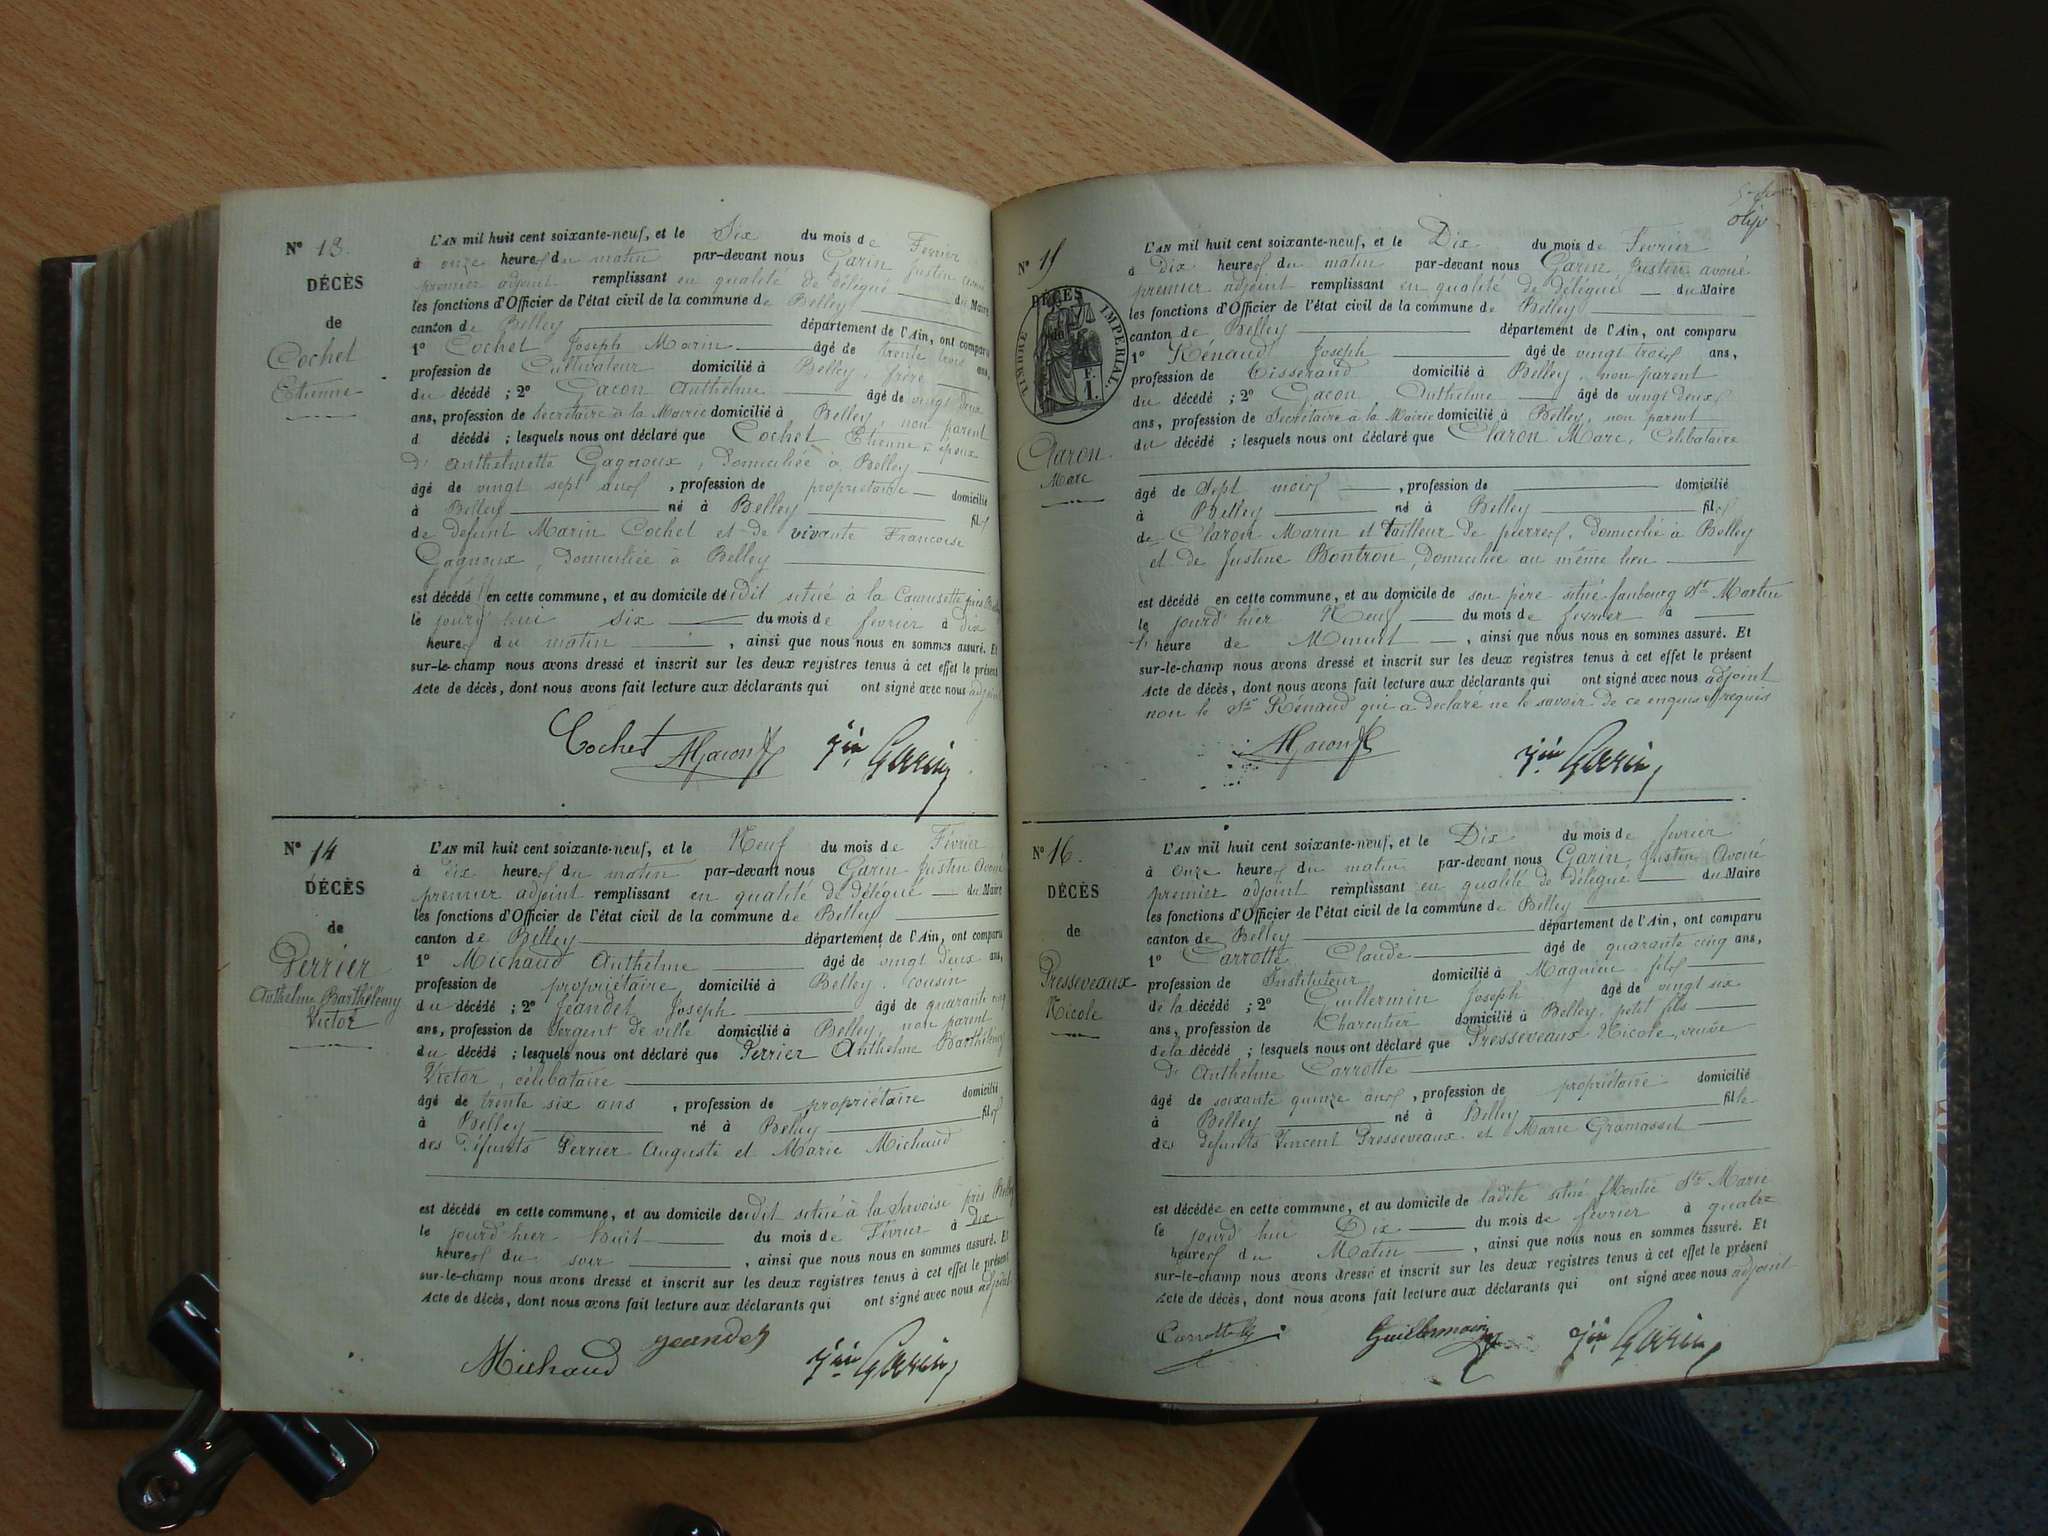 N° 13.
DÉCÈS
de
Cochet
Etienne
L'AN mil huit cent soixante-neuf, et le Six du mois de Fevrier
à onze heures du matin par-devant nous Garin Justin avoué
premier adjoint remplissant en qualité de délégué du Maire
les fonctions d'Officier de l'état civil de la commune de Belley
canton de Belley département de l'Ain, ont comparu
1° Cochet Joseph Marin âgé de trente trois ans,
profession de Cultivateur domicilié à Belley, frère
du décédé ; 2° Gacon Anthelme âgé de vingt deux
ans, profession de Secrétaire à la Mairie domicilié à Belley, non parent
d décédé ; lesquels nous ont déclaré que Cochet Etienne, époux
d'anthelmette Gagnoux, Domiciliée à Belley
âgé de vingt sept ans, profession de propriétaire domicilié
à Belley né à Belley fils
de defunt Marin Cochet et de vivante Francoise
Gagnoux, Domiciliée à Belley
est décédé en cette commune, et au domicile dudit situé à la Camusette près
le jourd'hui six du mois de fevrier à dix
heures du matin, ainsi que nous nous en sommes assuré. Et
sur-le-champ nous avons dressé et inscrit sur les deux registres tenus à cet effet le présent
Acte de décès, dont nous avons fait lecture aux déclarants qui ont signé avec nous adjoint
Cochet AGacon Jin Garin
N° 14
DÉCÈS
de
Perrier
Anthelme Barthélémy
Victor
L'AN mil huit cent soixante-neuf, et le Neuf du mois de Février
à dix heures du matin par-devant nous Garin Justin Avoué
premier adjoint remplissant en qualité de délégué du Maire
les fonctions d'Officier de l'état civil de la commune de Belley
canton de Belley département de l'Ain, ont comparu
1° Michaud Anthelme âgé de vingt deux ans,
profession de propriétaire domicilié à Belley, cousin
du décédé ; 2° Jeandet Joseph âgé de quarante cinq
ans, profession de Sergent de ville domicilié à Belley, non parent
du décédé ; lesquels nous ont déclaré que Perrier Anthelme Barthélémy
Victor, célibataire
âgé de trente six ans, profession de propriétaire domicilié
à Belley né à Belley fils
des Défunts Perrier Auguste et Marie Michaud
est décédé en cette commune, et au domicile dudit situé à la Servoise près Belley
le jourd'hier huit du mois de Février à Dix
heures du soir, ainsi que nous nous en sommes assuré. Et
sur-le-champ nous avons dressé et inscrit sur les deux registres tenus à cet effet le présent
Acte de décès, dont nous avons fait lecture aux déclarants qui ont signé avec nous adjoint
Michaud Jeandet Jin Garin
N° 15
DÉCÈS
de
TIMBRE IMPERIAL.
F.
1.
Claron
Marc
L'AN mil huit cent soixante-neuf, et le Dix du mois de Fevrier
à Dix heures du matin par-devant nous Garin, Justin avoué
premier adjoint remplissant en qualité de délégué du Maire
les fonctions d'Officier de l'état civil de la commune de Belley
canton de Belley département de l'Ain, ont comparu
1° Rénaud Joseph âgé de vingt trois ans,
profession de Tisserand domicilié à Belley, non parent
du décédé ; 2° Gacon Anthelme âgé de vingt deux
ans, profession de Secrétaire à la Mairie domicilié à Belley, non parent
du décédé ; lesquels nous ont déclaré que Claron Marc, Célibataire
âgé de Sept mois, profession de domicilié
à Belley né à Belley fils
de Claron Marin et tailleur de pierres, domicilié à Belley
et de Justine Bontron, Domiciliée au même lieu
est décédé en cette commune, et au domicile de son père situé faubourg St Martin
le jourd'hier Neuf du mois de fevrier à
l'heure de Minuit, ainsi que nous nous en sommes assuré. Et
sur-le-champ nous avons dressé et inscrit sur les deux registres tenus à cet effet le présent
Acte de décès, dont nous avons fait lecture aux déclarants qui ont signé avec nous adjoint
non le Sr Rénaud qui a declaré ne le savoir de ce enquis et requis
AGacon Jin Garin
N° 16.
DÉCÈS
de
Presseveaux
Nicole
L'AN mil huit cent soixante-neuf, et le Dix du mois de fevrier
à Onze heures du matin par-devant nous Garin, Justin Avoué
premier adjoint remplissant en qualité de délégué du Maire
les fonctions d'Officier de l'état civil de la commune de Belley
canton de Belley département de l'Ain, ont comparu
1° Carrotte Claude âgé de quarante cinq ans,
profession de Instituteur domicilié à Magnieu fils
de la décédé ; 2° Guillermin Joseph âgé de vingt six
ans, profession de Charcutier domicilié à Belley, petit fils
de la décédé ; lesquels nous ont déclaré que Presseveaux Nicole, veuve
d'Anthelme Carrotte
âgé de soixante quinze ans, profession de propriétaire domicilié
à Belley né à Belley fille
des defunts Vincent Presseveaux et Marie Gramasset
est décédée en cette commune, et au domicile de ladite situé Montée Ste Marie
le jourd'hui Dix du mois de fevrier à quatre
heures du Matin, ainsi que nous nous en sommes assuré. Et
sur-le-champ nous avons dressé et inscrit sur les deux registres tenus à cet effet le présent
Acte de décès, dont nous avons fait lecture aux déclarants qui ont signé avec nous adjoint
Carrotte Guillermin Jin Garin